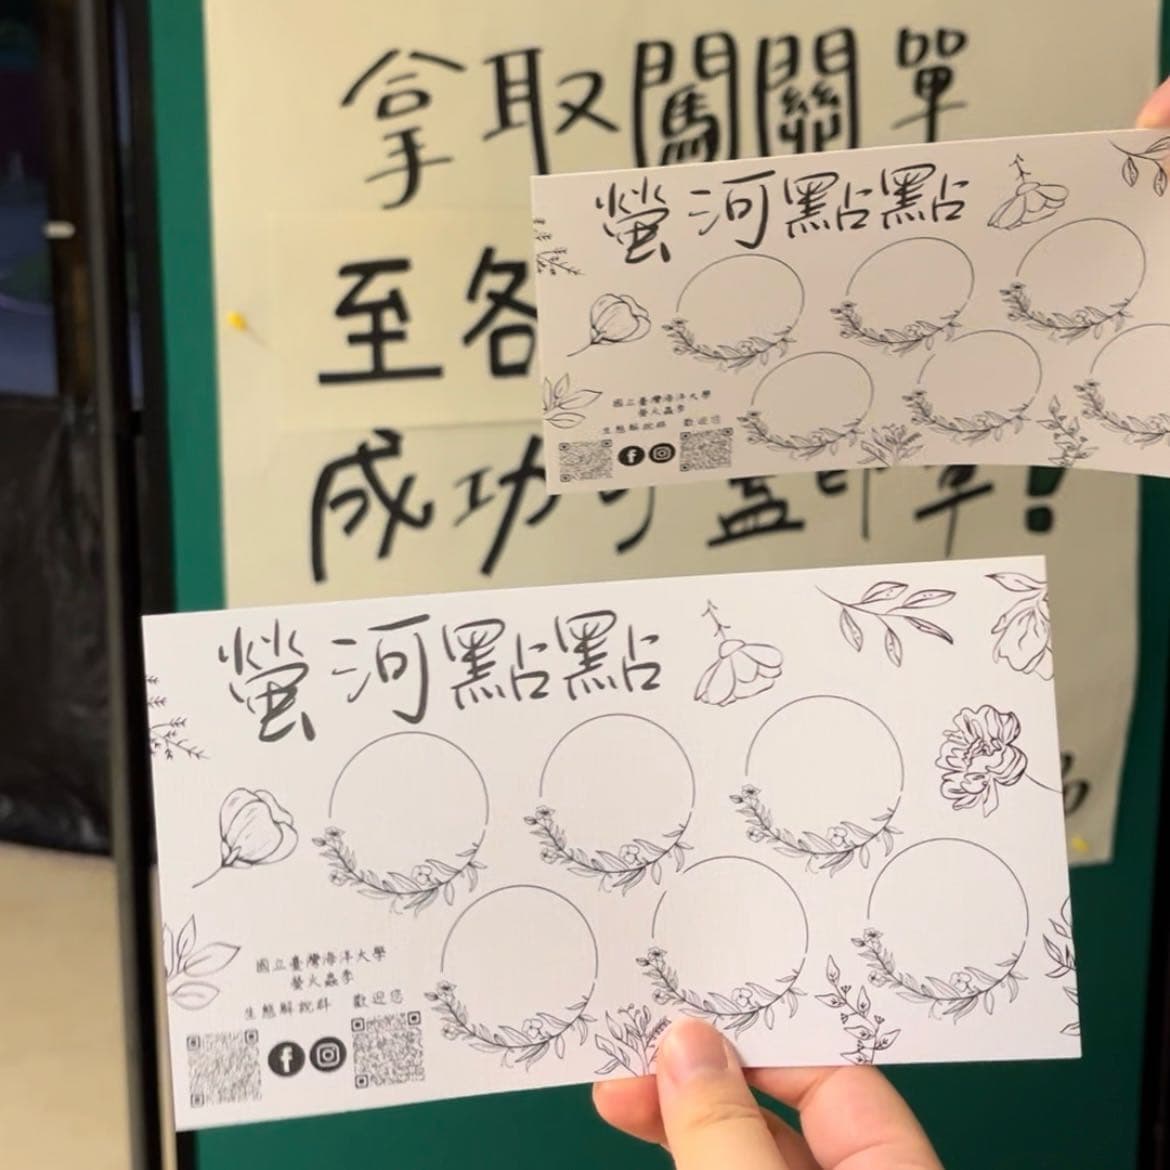 拿取闖關單
至各
成功可蓋印章!
螢河點點
國立臺灣海洋大學
螢火蟲季
生態解說群 歡迎您
螢河點點
國立臺灣海洋大學
螢火蟲季
生態解說群 歡迎您